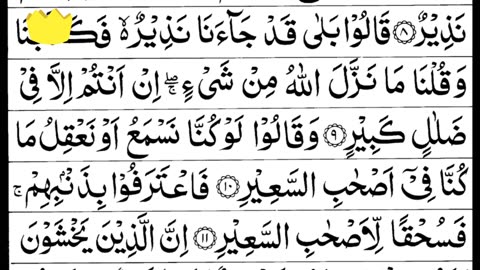 نَذِيْرٌ ﴿۸﴾ قَالُوْا بَلٰى قَدْ جَآءَنَا نَذِيْرٌ ۙ۬ فَكَذَّبْنَا
وَقُلْنَا مَا نَزَّلَ اللّٰهُ مِنْ شَىْءٍ ۖۚ اِنْ اَنْتُمْ اِلَّا فِىْ
ضَلٰلٍ كَبِيْرٍ ﴿۹﴾ وَقَالُوْا لَوْ كُنَّا نَسْمَعُ اَوْ نَعْقِلُ مَا
كُنَّا فِىْٓ اَصْحٰبِ السَّعِيْرِ ﴿۱۰﴾ فَاعْتَرَفُوْا بِذَنْۢبِهِمْ ۚ
فَسُحْقًا لِّاَصْحٰبِ السَّعِيْرِ ﴿۱۱﴾ اِنَّ الَّذِيْنَ يَخْشَوْنَ